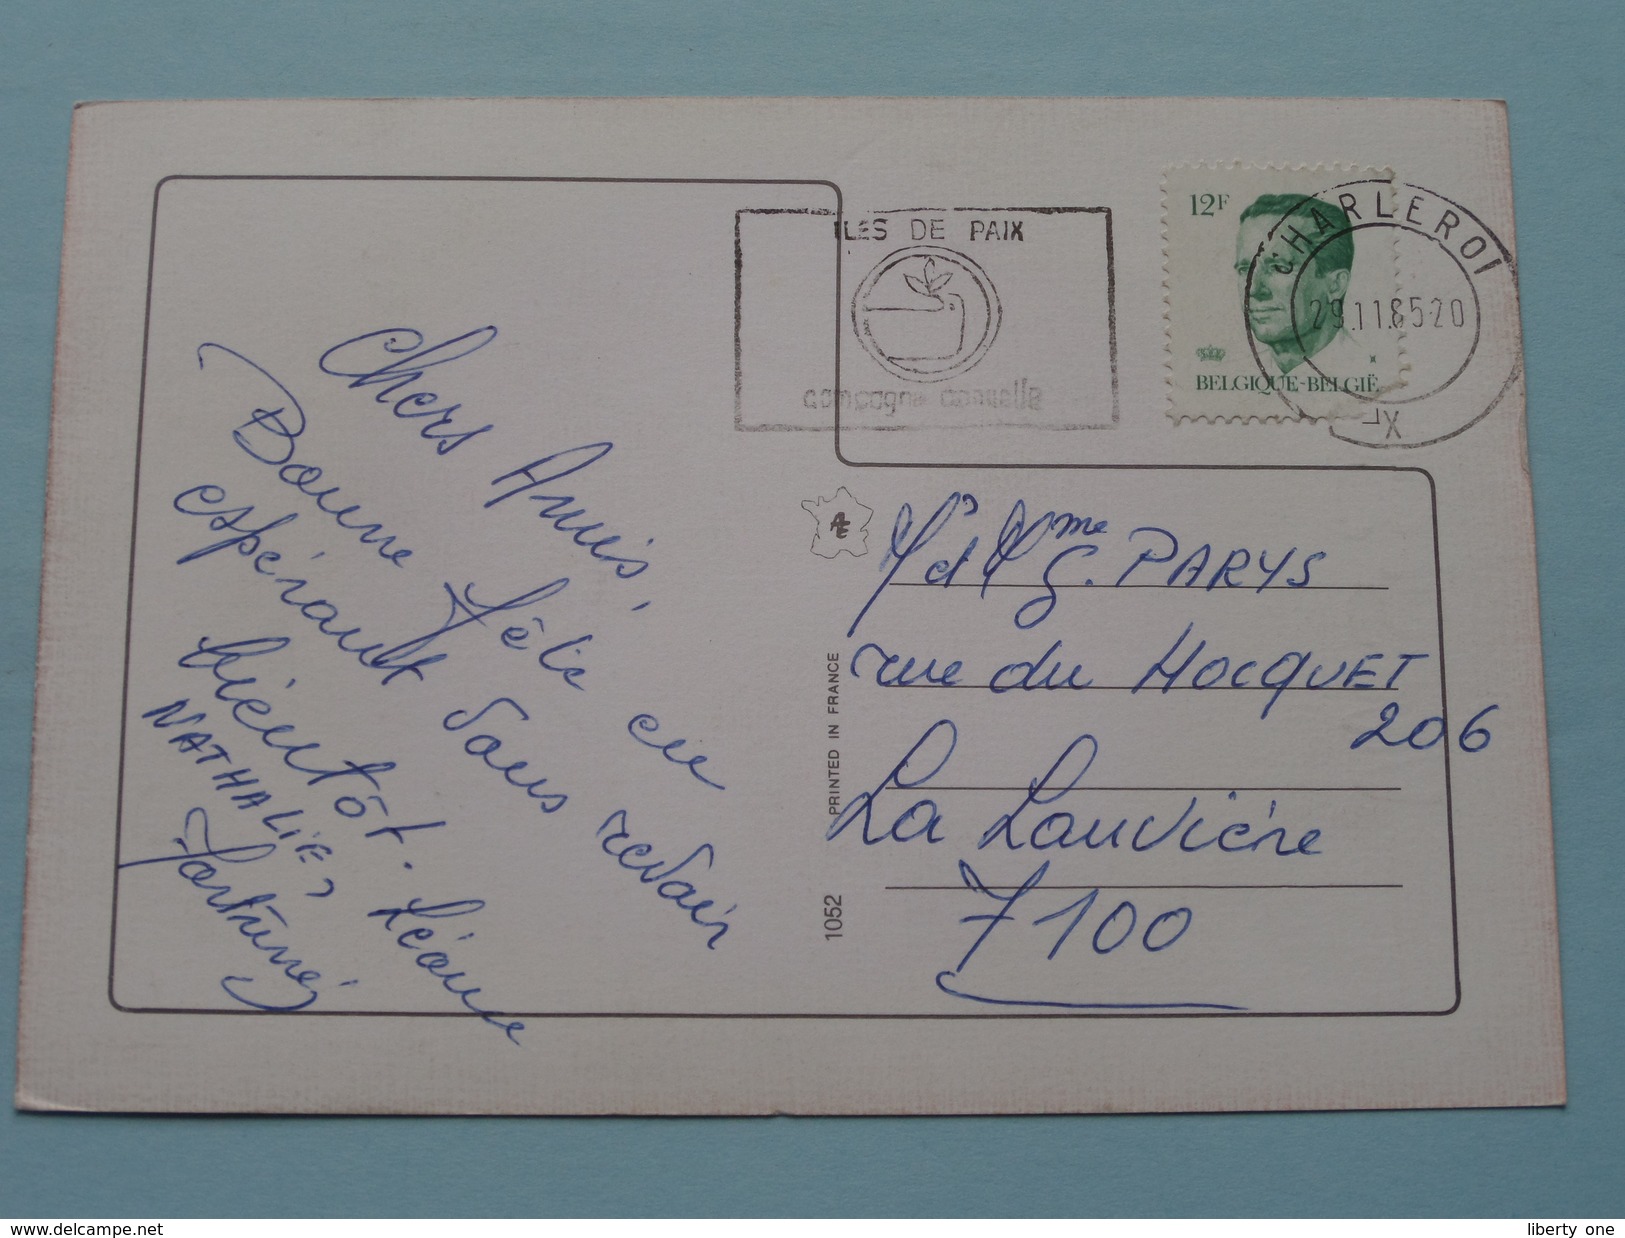 ILES DE PAIX
campagne annuelle
12F
BELGIQUE-BELGIË
CHARLEROI
29.11.85-20
X
Chers Amis,
Bonne fête en
espérant vous revoir
bientôt. Léone
NATHALIE
Fortuné
AE
PRINTED IN FRANCE
1052
M et Mme G. PARYS
rue du HOCQUET
206
La Louvière
7100
www.delcampe.net
liberty_one